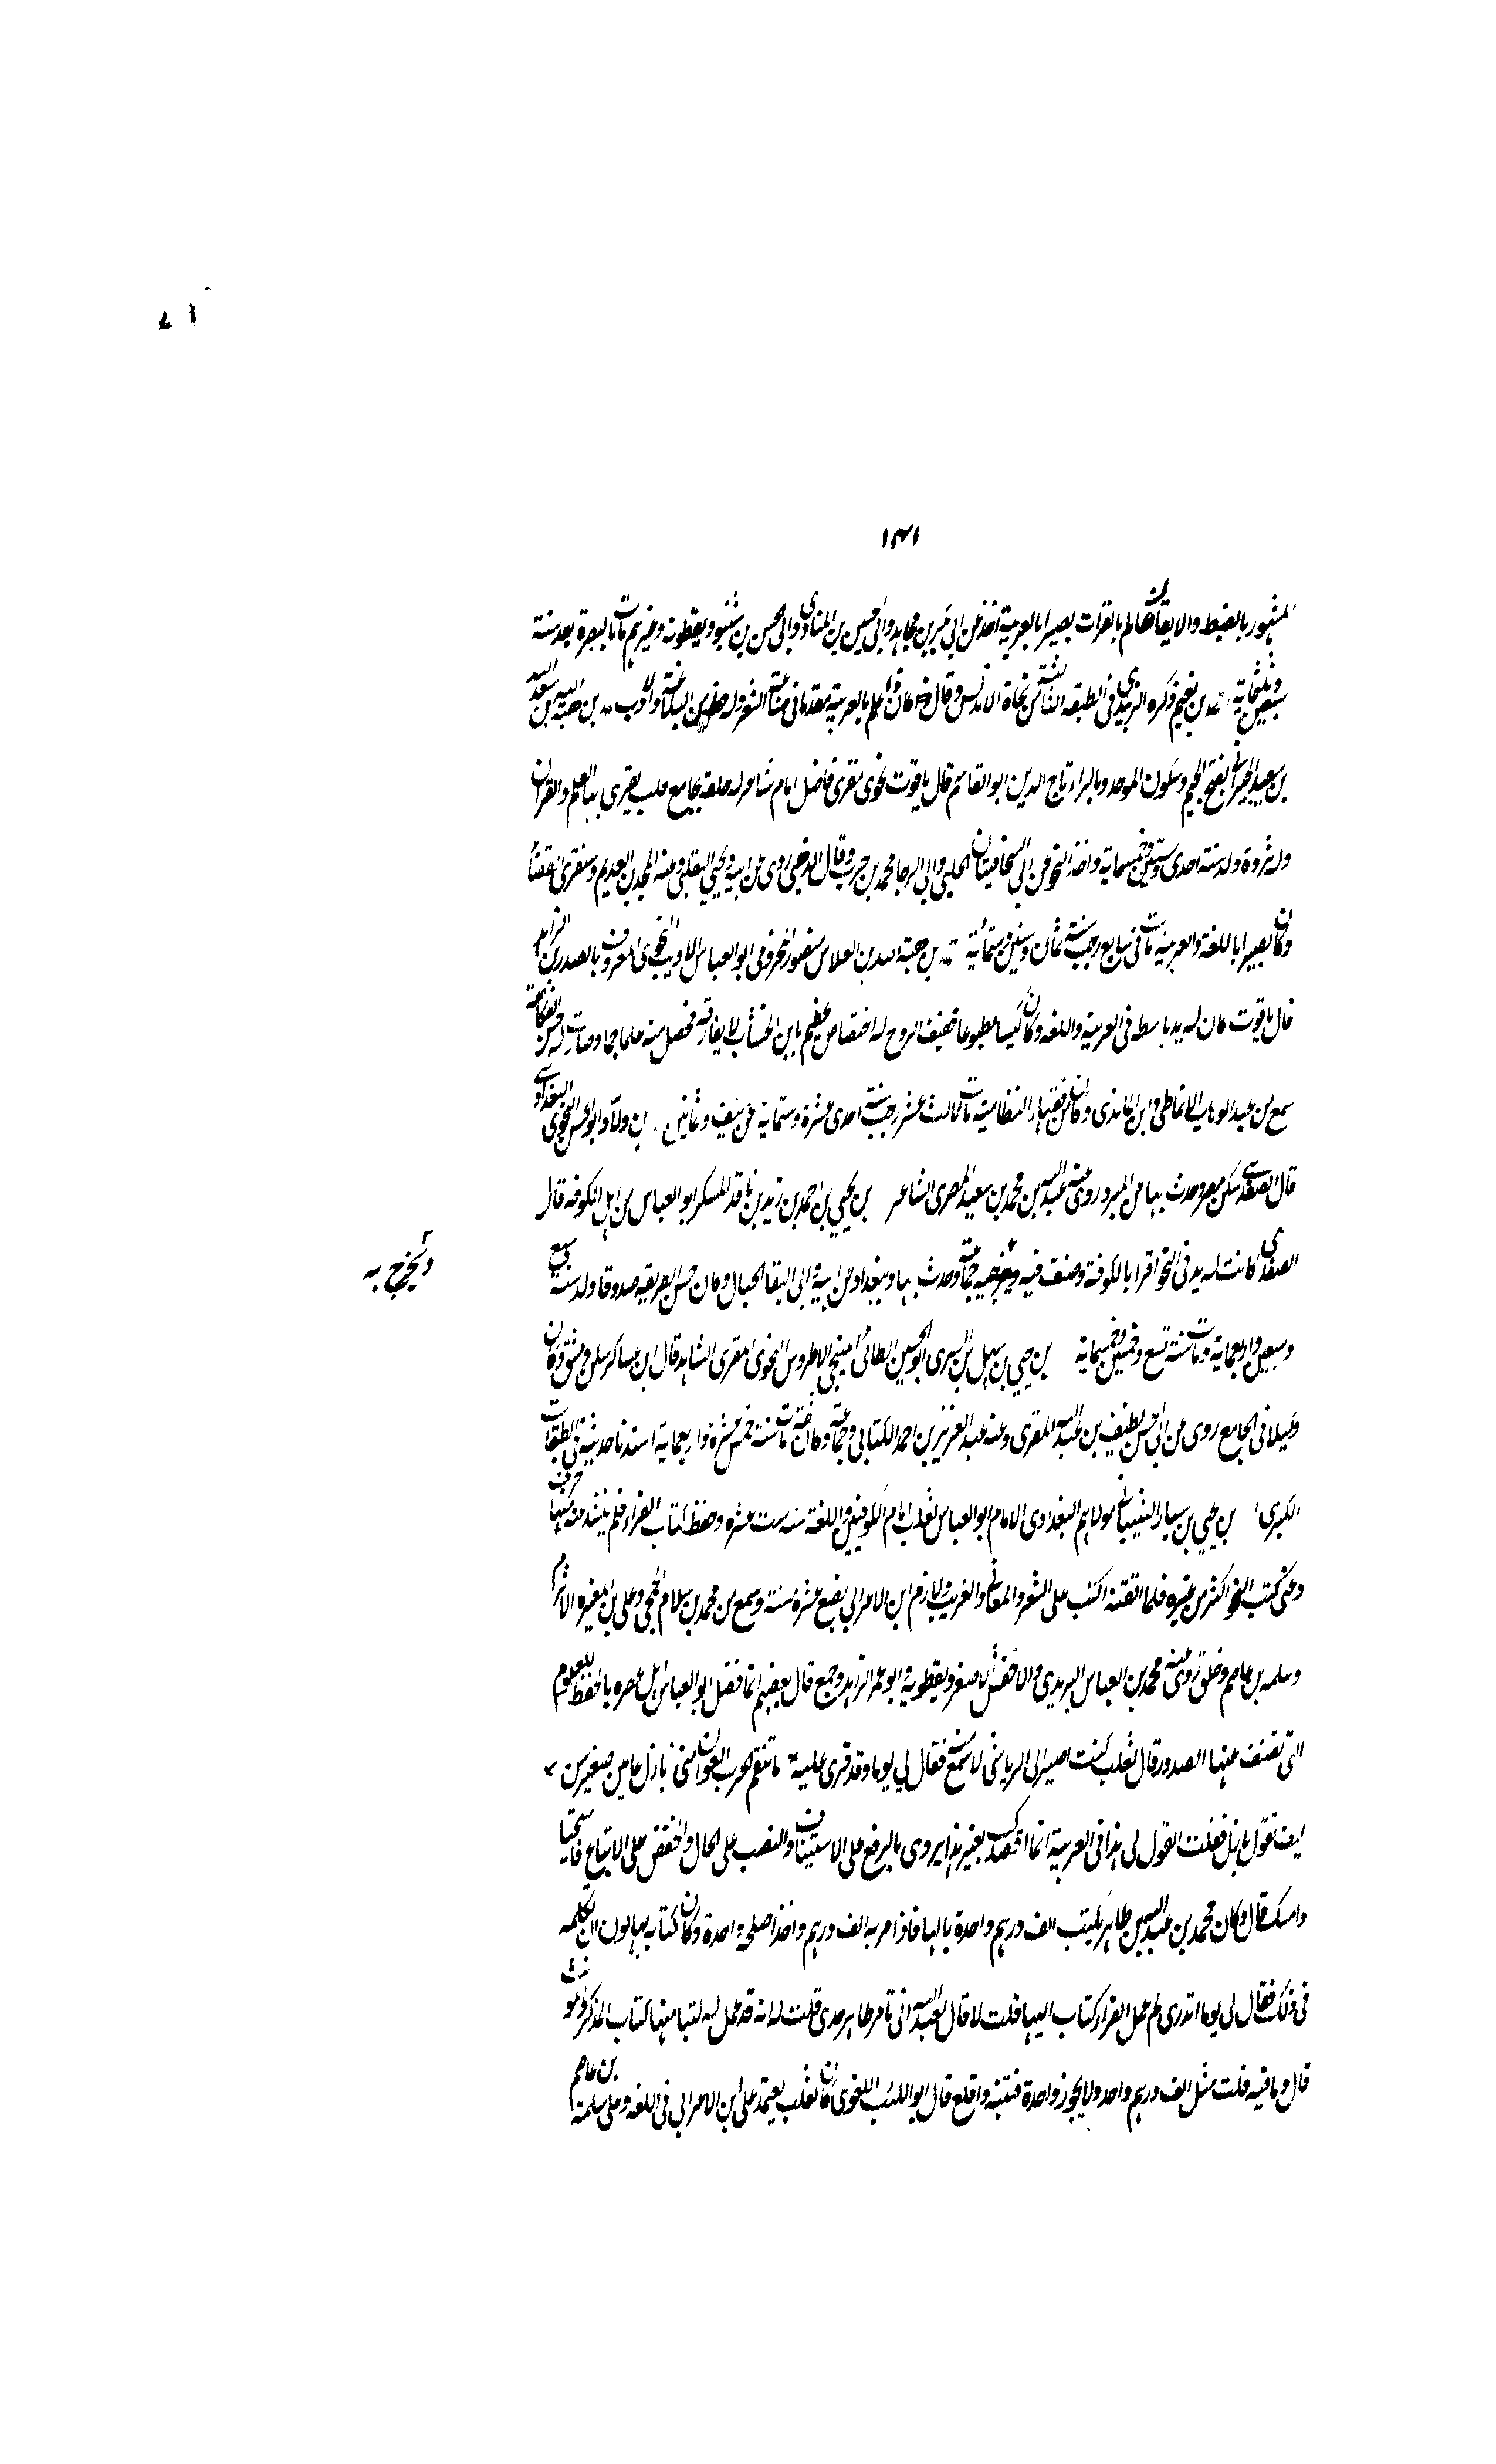 ١٤١
المشهور بالضبط والاتقان عالم بالقرات بصيرا بالعربية اخذ عن ابى بكر بن مجاهد وابى الحسين بن المنادى وابى الحسن بن شنبوذ ونفطويه وغيرهم مات بالبصرة بعد سنة
سبعين وثلثماية بن نعيم ذكره الزبيدى فى الطبقة الثالثة من نحاة الاندلس وقال كان ذا علم بالعربية مقدما فى صناعة الشعر وله حظ من البلاغة والادب بن هبة الله بن سعد الله
بن سعيد الجبرانى بفتح الجيم وسكون الموحد وبالراء تاج الدين ابو القاسم قال ياقوت نحوى مقرى فاضل امام شاعر له حلقة بجامع حلب يقرى بها العلم والقران
وله ثروة ولد سنة احدى وستين وخمسماية واخذ النحو عن ابى السخا فتيان الحلبى وابى الرجا محمد بن حرب وقال الذهبى روى عن ابيه ويحيى الثقفى وعنه المجد بن العديم وسنقر القضائى
وكان بصيرا باللغة والعربية مات فى سابع رجب سنة ثمان وستين وستمائة بن هبة الله بن العلا بن منصور المخزومى ابو العباس الاديب النحوى المعروف بالصدر بن الزاهد
قال ياقوت كان له يد باسطة فى العربية واللغة وكان كيسا مطبوعا خفيف الروح له اختصاص عظيم بابن الخشاب لا يفارقه فحصل منه علما جما وصارت له حسن الفكاهة
سمع من عبد الوهاب الانماطى وابن المانذى وكان من فقهاء النظامية مات ثالث عشر رجب سنة احدى عشرة وستماية عن نيف وثمانين . بن ولاد ابو الحسن النحوى البغدادى
قال الصفدى سكن مصر وحدث بها عن المبرد روى عنه عبد الله بن محمد بن سعيد المصرى الشاعر بن يحيى بن احمد بن زيد بن ناقد المسكى ابو العباس من اهل الكوفة قال
الصفدى كانت له يد فى النحو اقرا بالكوفة وصنف فيه وتخرج به جماعة وحدث بها وببغداد عن ابيه وابى البقا الحبال وكان حسن الطريقة صدوقا ولد سنة سبع
وتخرج به
وسبعين واربعماية ومات سنة تسع وخمسين وخمسماية بن يحيى بن سهل بن السرى ابو الحسين الطائى المنبجى الاطروش النحوى المقرى الشاهد قال ابن عساكر سكن دمشق وكان
وكيلا فى الجامع روى عن ابى الحسن لطيف بن عبد الله المقرى وعنه عبد العزيز بن احمد الكتانى وجماعة وكان ثقة مات سنة خمس عشرة واربعماية اسندنا حديثه فى الطبقات
الكبرى بن يحيى بن سيار الشيبانى مولاهم البغدادى الامام ابو العباس ثعلب امام الكوفيين فى النحو واللغة سنة ست عشرة وحفظ كتاب الفراء فلم يشذ منه حرف
وعنى بكتب النحو اكثر من غيره فلما اتقنه اكب على الشعر والمعانى والغريب ولازم ابن الاعرابى بضع عشرة سنة وسمع من محمد بن سلام الجمحى وعلى بن المغيرة الاثرم
وسلمة بن عاصم وخلق روى عنه محمد بن العباس اليزيدى والاخفش الاصغر ونفطويه وابو عمر الزاهد وجمع قال بعضهم انما فضل ابو العباس اهل عصره بالحفظ للعلوم
التى تضيق عنها الصدور قال ثعلب كنت اصير الى الرياشى لاسمع منه فقال لى يوما وقد قرى عليه ما تنقم الحرب العوان منى بازل عامين صغير سن
كيف تقول بازل فقلت اتقول لى هذا فى العربية انما اقصدك بغير هذا يروى بالرفع على الاستيناف والنصب على الحال والخفض على الاتباع فاستحيا
وامسك قال وكان محمد بن عبد الله بن طاهر يكتب الف درهم واحدة بالها فاذا مر به الف درهم واحد اصلحه واحدة وكان كتابه يهابون ان تكلمه
فى ذلك فقال لى يوما اتدرى لم عمل الفراء كتاب البها قلت لا قال لعبد الله ابى بامر طاهر جدى قلت له انه قد عمل له كتبا منها كتاب المذكر والمونث
قال وما فيه قلت مثل الف درهم واحد ولا يجوز واحدة فتنبه واقلع قال ابو الطيب اللغوى كان ثعلب يعتمد على ابن الاعرابى فى اللغة وعلى سلمة بن عاصم